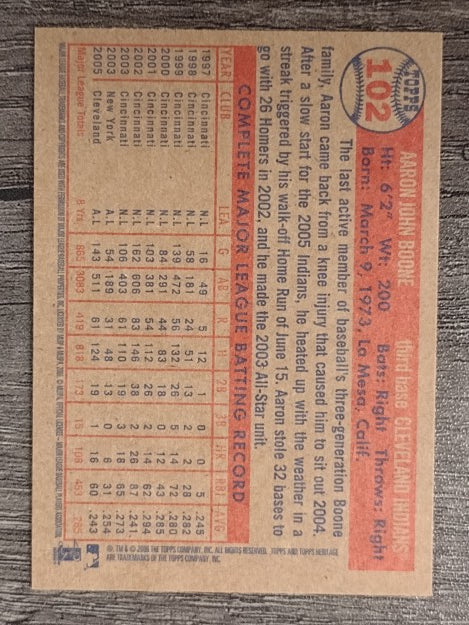 TOPPS
102
AARON JOHN BOONE
third base CLEVELAND INDIANS
Ht: 6'2" Wt: 200 Bats: Right Throws: Right
Born: March 9, 1973, La Mesa, Calif.
The last active member of baseball's three-generation Boone
family, Aaron came back from a knee injury that caused him to sit out 2004.
After a slow start for the 2005 Indians, he heated up with the weather in a
streak triggered by his walk-off Home Run of June 15. Aaron stole 32 bases to
go with 26 Homers in 2002, and he made the 2003 All-Star unit.
COMPLETE MAJOR LEAGUE BATTING RECORD
YEAR CLUB LEA G AB R H 2B 3B HR RBI AVG
1997 Cincinnati N.L 16 49 5 12 1 0 0 5 .245
1998 Cincinnati N.L 58 181 24 51 13 2 2 28 .282
1999 Cincinnati N.L 139 472 56 132 26 5 14 72 .280
2000 Cincinnati N.L 84 291 44 83 18 0 12 43 .285
2001 Cincinnati N.L 103 381 54 112 26 2 14 62 .294
2002 Cincinnati N.L 162 606 83 146 38 2 26 87 .241
2003 Cincinnati N.L 106 403 61 110 19 3 18 65 .273
2003 New York A.L 54 189 31 48 13 0 6 31 .254
2005 Cleveland A.L 143 511 61 124 19 1 16 60 .243
Major League Totals 8 Yrs. 865 3083 419 818 173 15 108 453
® TM & © 2006 THE TOPPS COMPANY, INC. ALL RIGHTS RESERVED. TOPPS AND TOPPS HERITAGE
ARE TRADEMARKS OF THE TOPPS COMPANY, INC.